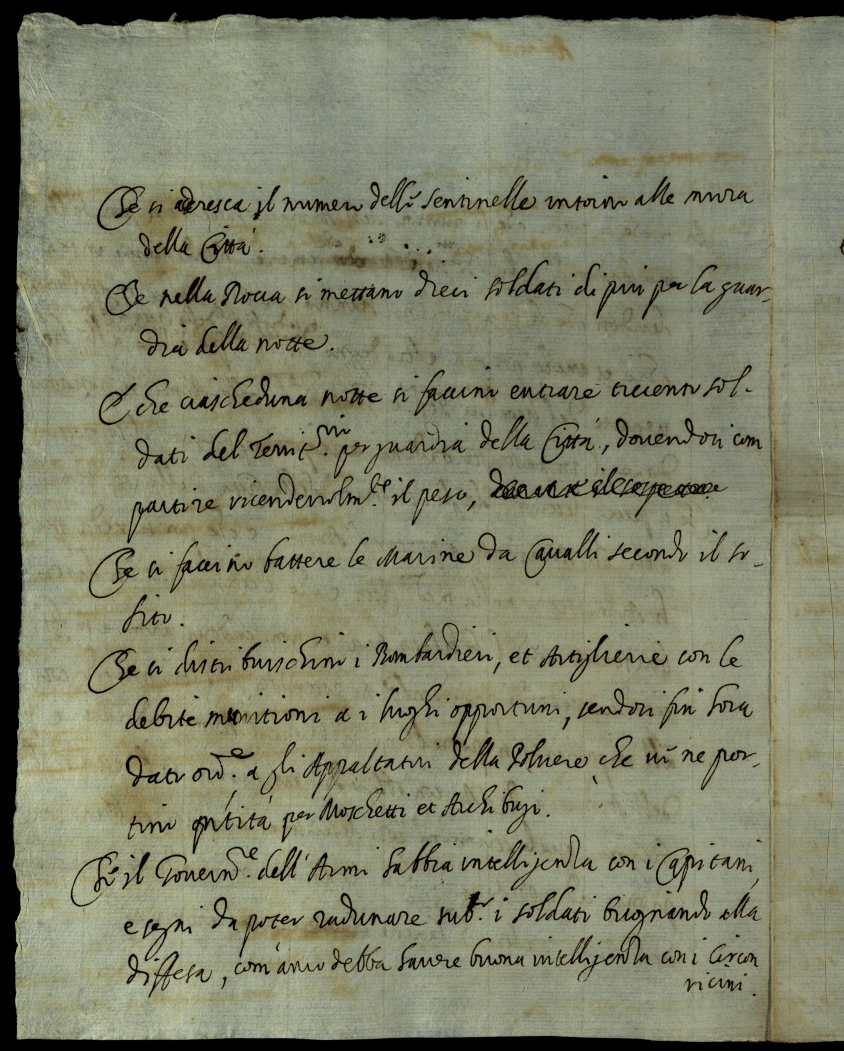 Che si accresca il numero delle sentinelle intorno alle mura
della Città.
Che nella Rocca si mettano dieci soldati di piu per la guar-
dia della notte.
E che ciascheduna notte si faccino entrare trecento sol-
dati del Territ.rio per guardia della Città, dovendosi com
partire vicendevolm.te il peso,
Che si faccino battere le Marine da Cavalli secondo il so-
lito.
Che si distribuischino i Bombardieri, et Artiglierie con le
debite munitioni a i luoghi opportuni, sendosi fin hora
dato ord.e a gli Appaltatori della Polvere che vi ne por-
tino q.ntità per Moschetti et Archibugi.
Che il Govern.e dell'Armi habbia intelligenza con i Capitani,
e segni da poter radunare sub.o i soldati bisognando alla
diffesa, com'anco debba havere buona intelligenza con i Circon
vicini.